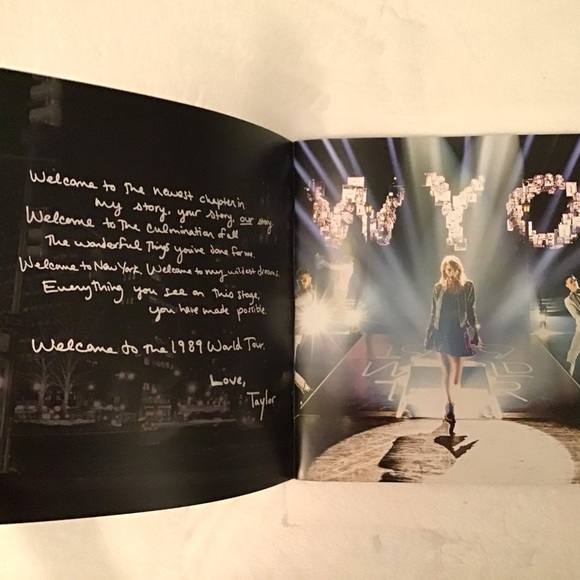 Welcome to the newest chapter in
my story, your story, our story
Welcome to the culmination of all
the wonderful things you've done for me.
Welcome to New York, Welcome to my wildest dreams
Everything you see on this stage,
you have made possible
Welcome to the 1989 World Tour.
Love,
Taylor
NYC
WORLD
TOUR